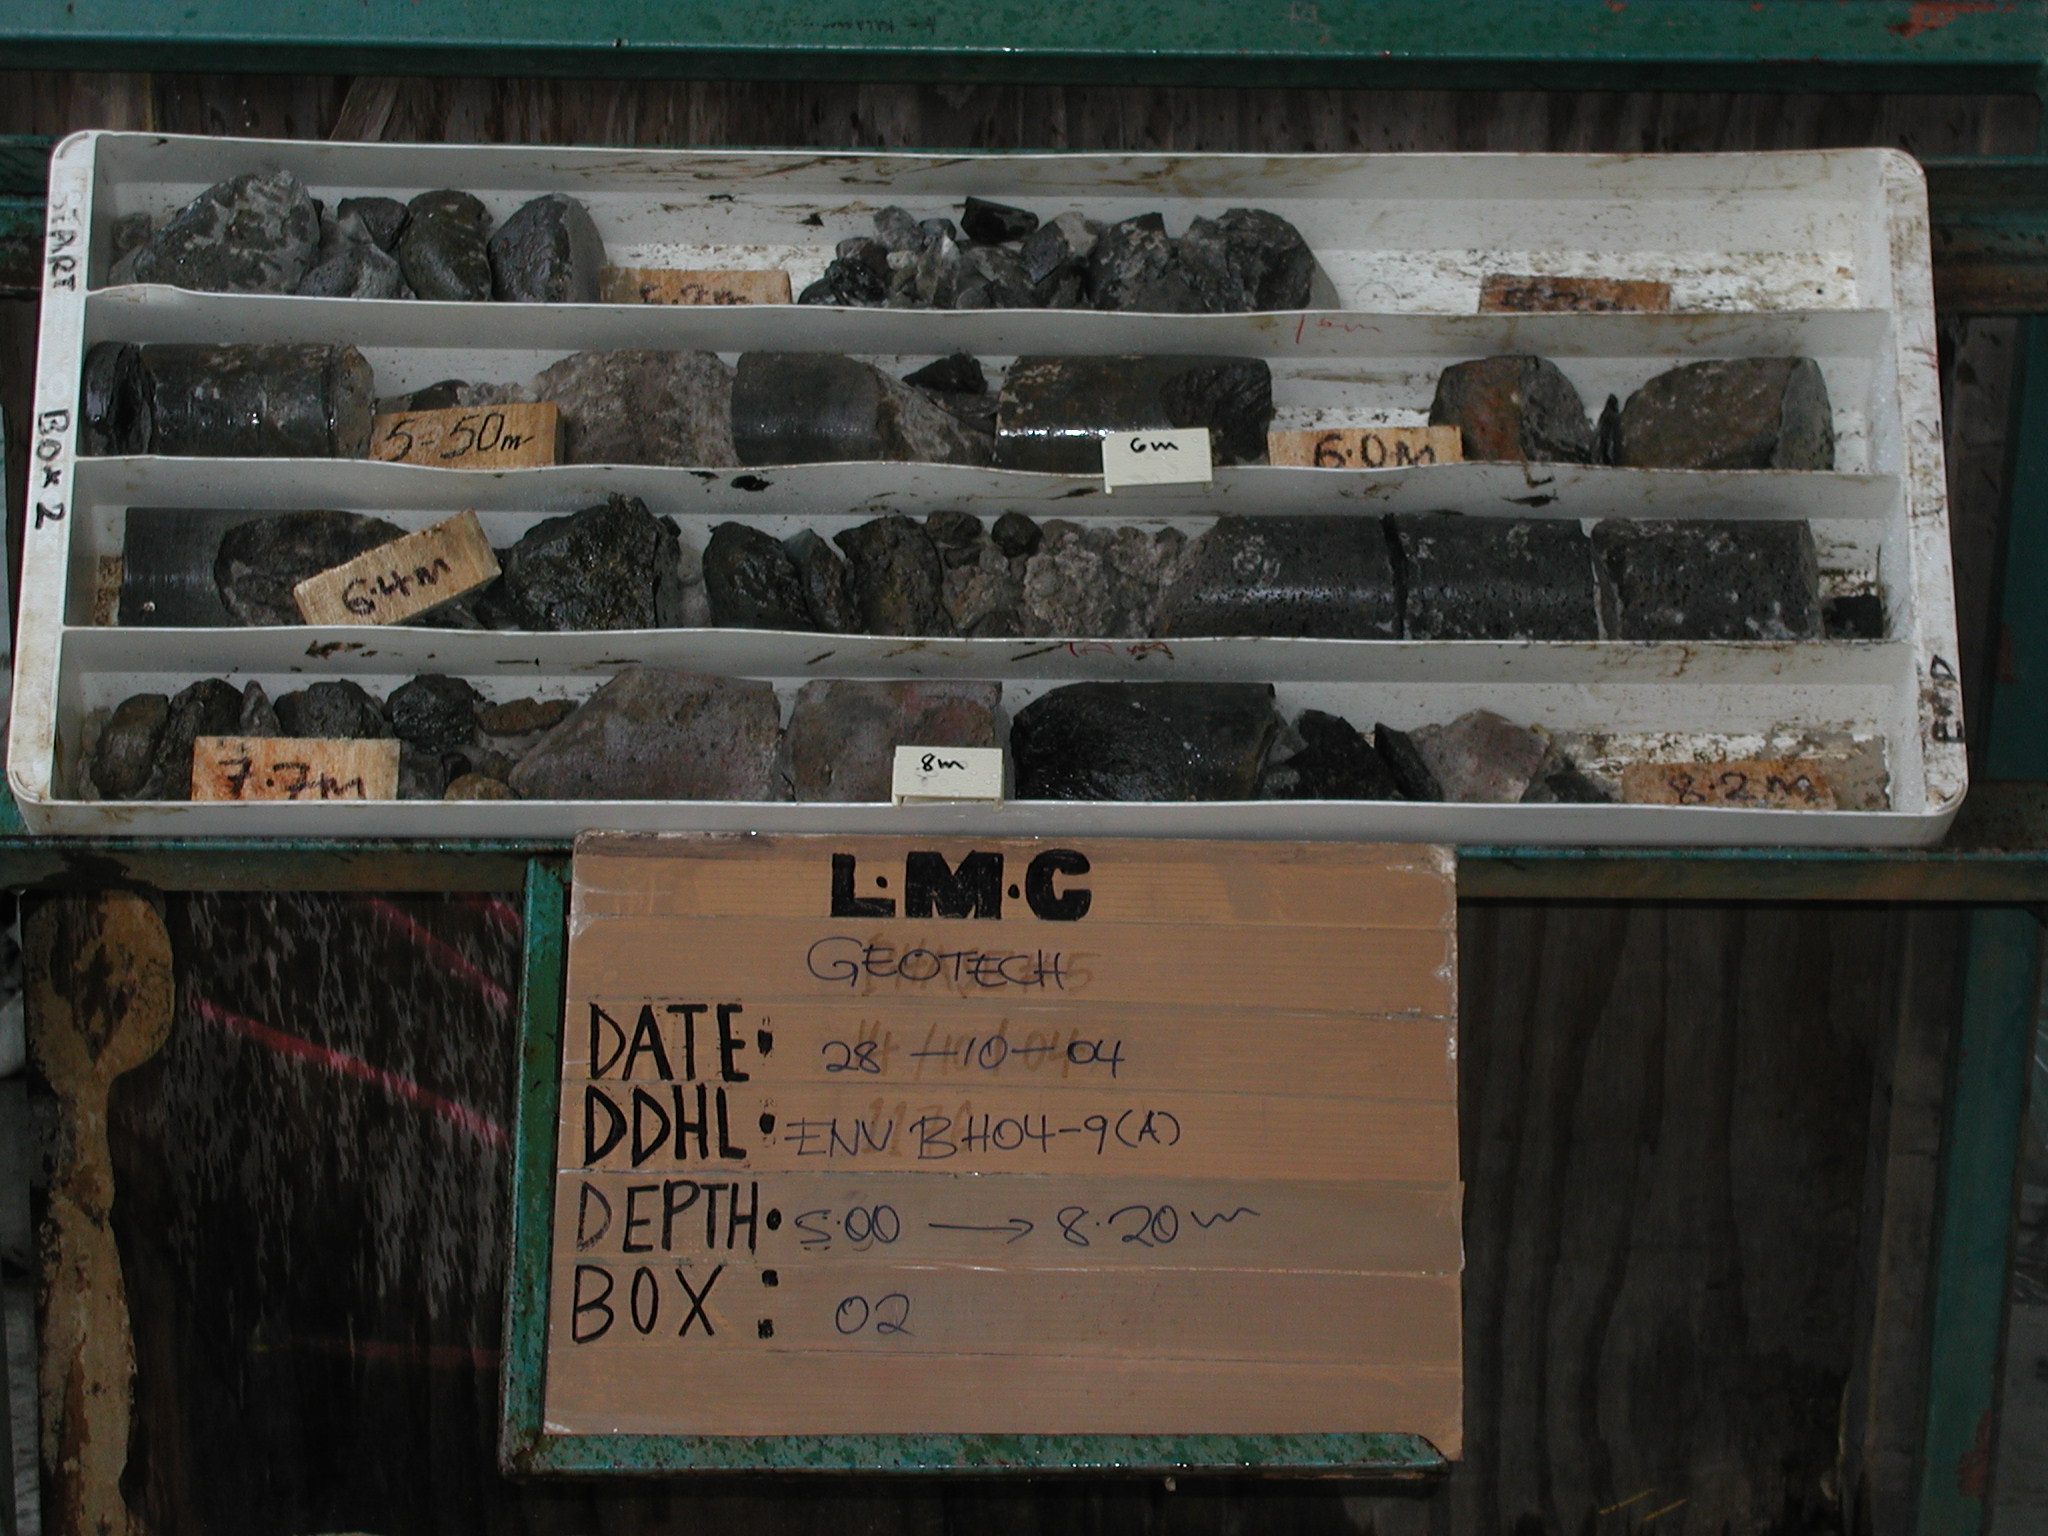 START
BOX 2
5-50m
6m
6.0M
6.4M
7.7m
8m
8.2M
END
L.M.C
GEOTECH
DATE: 28-10-04
DDHL: ENV BH04-9(A)
DEPTH: 5.00 → 8.20m
BOX: 02